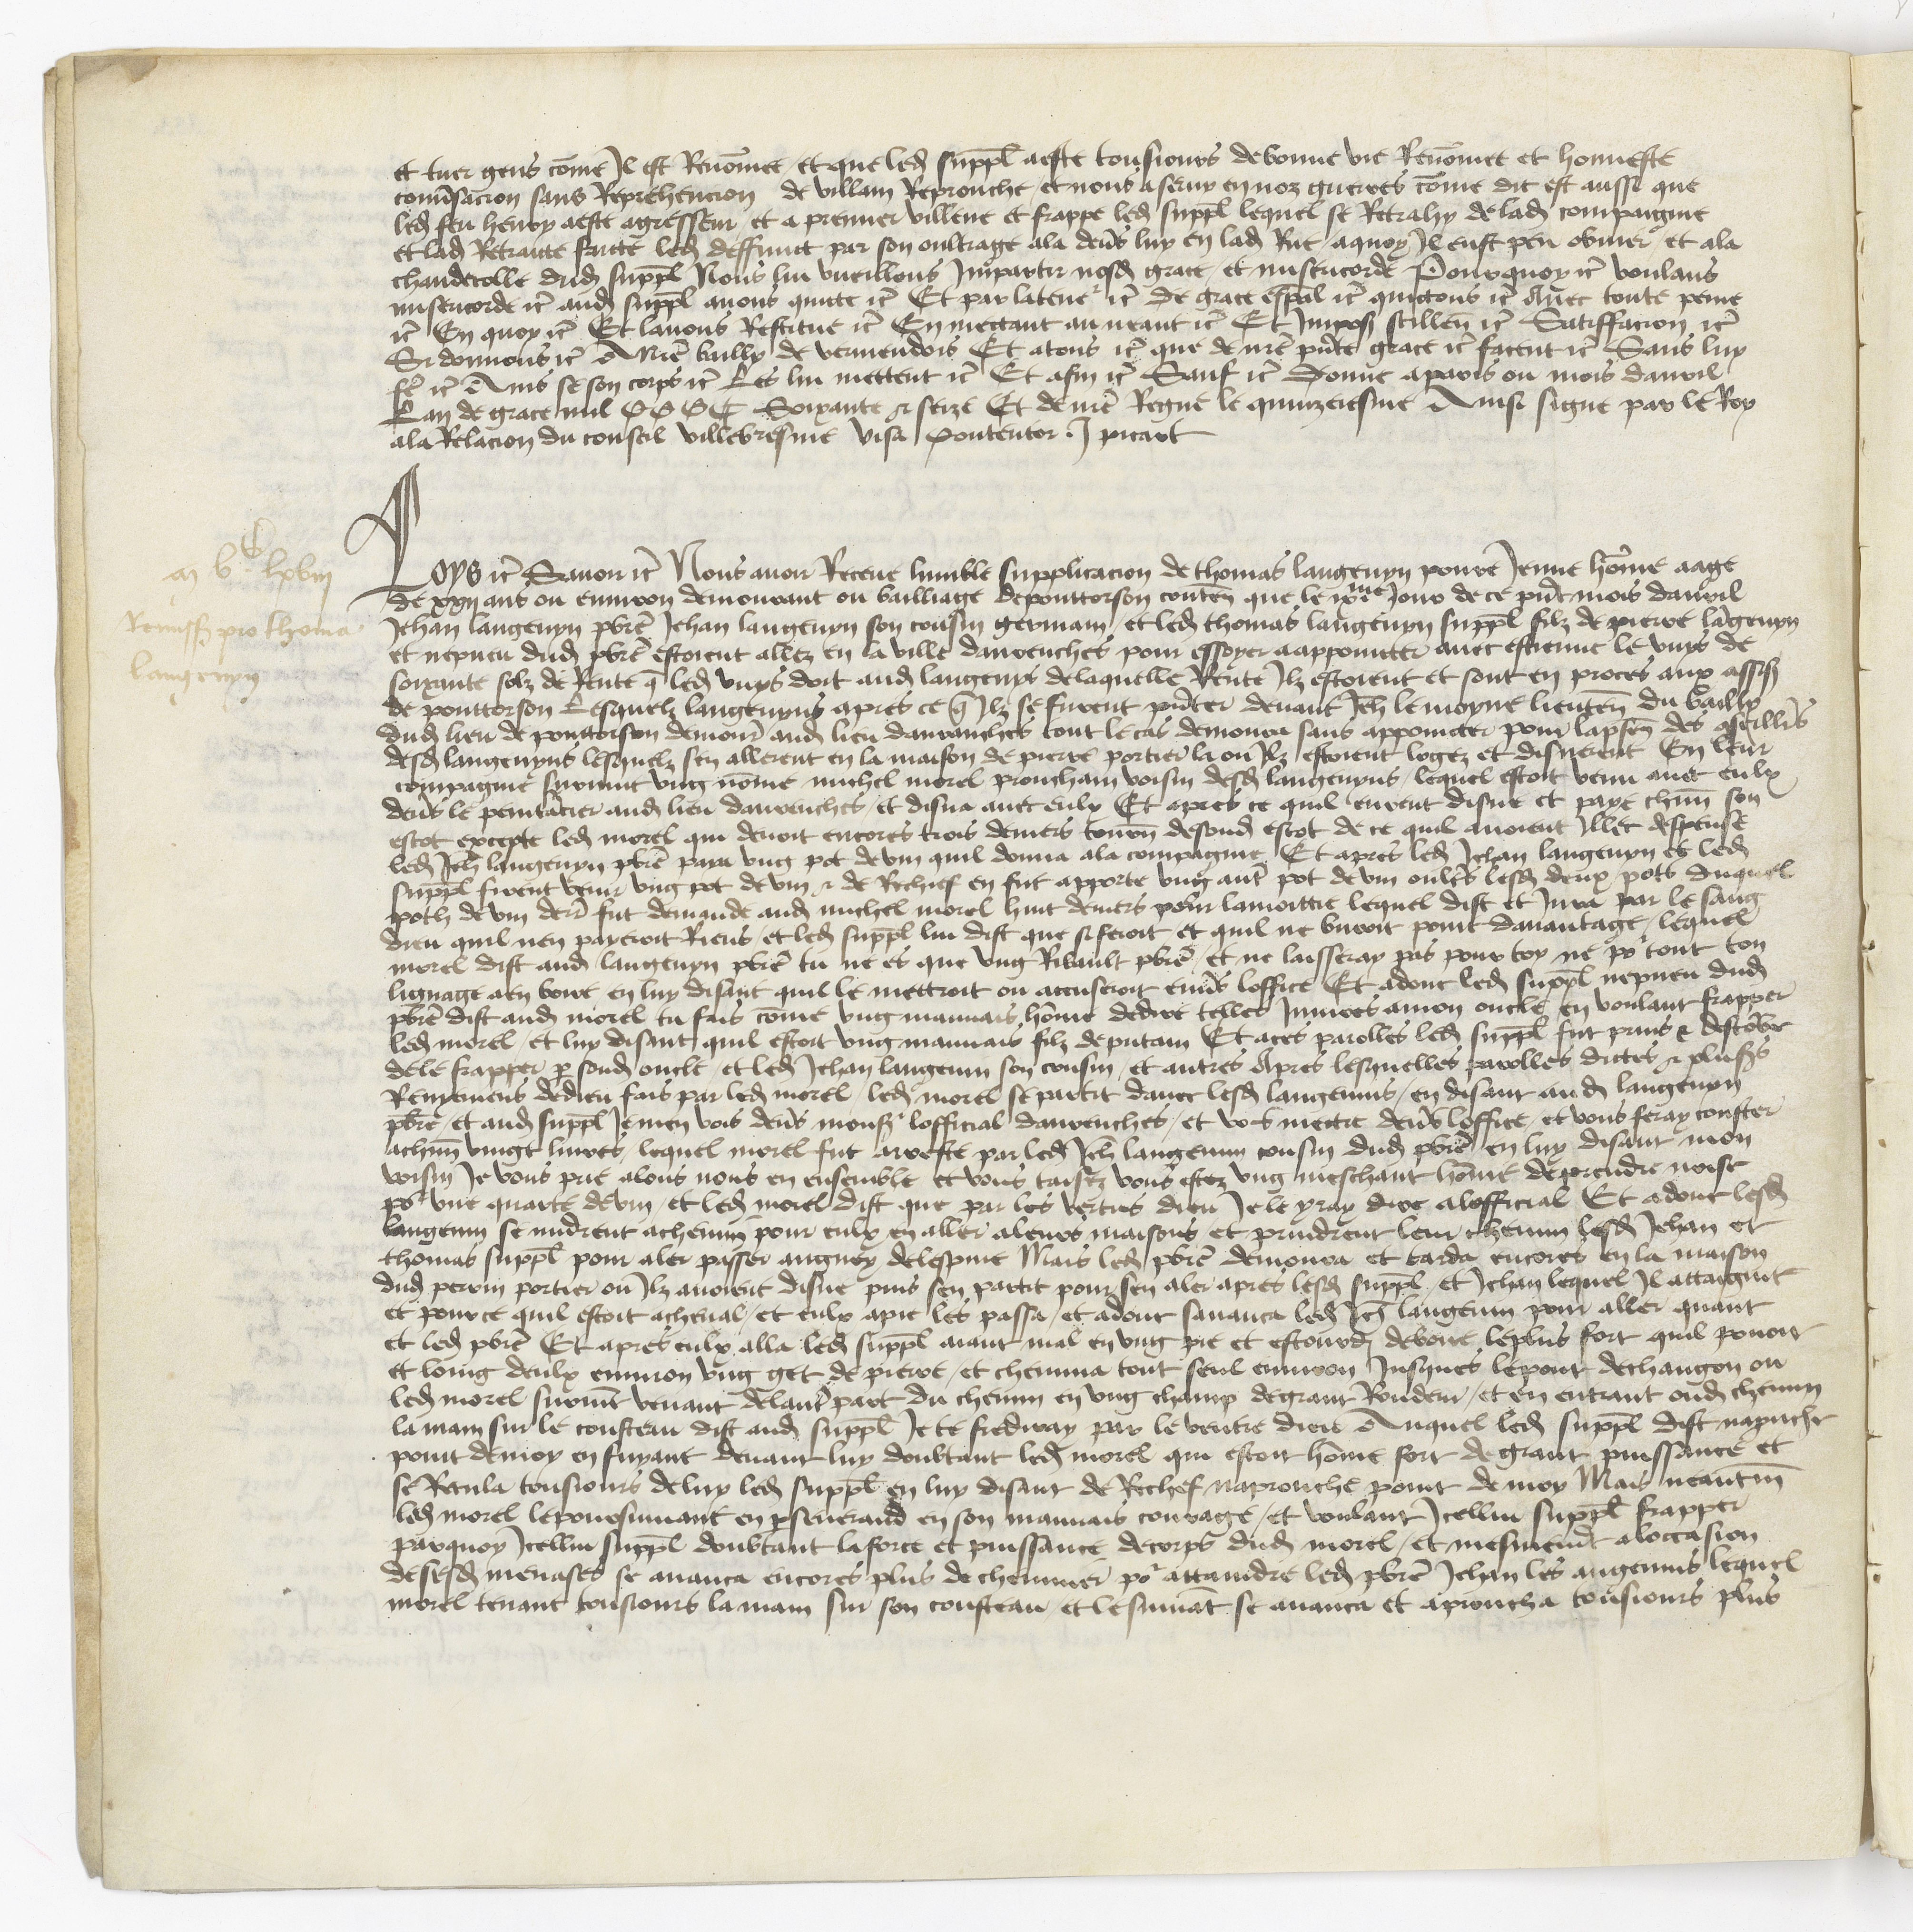 et tuer gens come Il est Renomee / et que led suppl a este tousiours de bonne vie Renomee et honneste
conversacion sans Reprehencion de villain Reprouche / et nous a servy en noz guerres come dit est aussi que
led feu henry a este agresseur / et a premier villene et frappe led suppl lequel se Retrahy de lad compaignie
et lad Retraicte faicte led deffunct par son oultrage ala devs luy en lad Rue / aquoy Il eust peu obvier / et ala
chandecolle dud suppl Nous lui vueillons Impartir nosd grace / et misericorde Pourquoy etc voulans
misericorde etc aud suppl avons quicte etc Et par la tener etc de grace espal etc quictons etc Avec toute peine
etc En quoy etc Et lavons Restitue etc En mectant au neant etc Et Impos scillen etc Satisffacion etc
Si donnons etc A nre bailly de vermendois Et atous etc que de nre pnte grace etc facent etc Sans luy
fe etc Ains se son corps etc Les lui mectent etc Et afin etc Sauf etc Donne a paris ou mois davril
Lan de grace mil CCCC Soixante & seize Et de nre Regne le quinzeiesme Ainsi signe par le Roy
ala Relacion du conseil villebresme Visa Contentor J picart
Loys etc Savoir etc Nous avoir Receue humble supplicacion de thomas langevyn povre Jeune home aage
de xxii ans ou environ demourant ou bailliage de ponttorson conten que le ixme Jour de ce pnt mois davril
Jehan langevyn pbre Jehan langevyn son cousin germain / et led thomas langevyn suppl filz de pierre lagevyn
et nepveu dud pbre estoient allez en la ville davrenches pour essoyer aappoincter avec estienne le vuys de
soixante solz de Rente q led vuys doit aud langevys de laquelle Rente Ilz estoient et sont en proces aux assis
de ponttorson Lesquelz langevyns apres ce q Ilz se furent pnter devant Jeh le moyne lieuten du bailly
dud lieu de ponttorson demour aud lieu davranches tout le cas demoura sans appoincter pour lapsen des cseillers
desd langevyns lesquelz sen allerent en la maison de pierre portier la ou Ilz estoient logez et disnerent En leur
compaignie survint ung nome michel morel prouchain voisin desd langevyns / lequel estoit venu avec eulx
devs le penitacier aud lieu davrenches / et disna avec eulx Et apres ce quil eurent disne et paye chun son
escot excepte led morel qui devoit encores trois deniers tourn de sond escot de ce quil avoient Illec despense
led Jeh langevyn pbre paya ung pot de vin quil donna ala compaignie Et apres led Jehan langevyn et led
suppl firent venir ung pot de vin & de Rechief en fut apporte ung autr pot de vin oultre lesd deux pots duquel
poth de vin derr fut demande aud michel morel huit deniers pour la moittie lequel dist et Jura par le sang
dieu quil nen payeroit Riens / et led suppl lui dist que si feroit et quil ne buvroit point davantage / lequel
morel dist aud langevyn pbre tu ne es que ung Ribault pbre / et ne laisseray pas pour toy ne po tout ton
lignage a en boire en luy disant quil le mettroit ou accuseroit envs loffice Et adonc led suppl nepveu dud
pbre dist aud morel tu fais come ung mauvais home de dire telles Iniures a mon oncle en voulant frapper
led morel / et luy disant quil estoit ung mauvais filz de putain Et aces parolles led suppl fut prins & destorbe
de le frapper p sond oncle / et led Jehan langevin son cousin / et autres Apres lesquelles parolles dictes & plus
Renyemens de dieu fais par led morel / led morel se partit davec lesd langevins / en disant aud langevyn
pbre / et aud suppl Je men vois devs monsr lofficial davrenches / et vos mettre devs loffice / et vous feray couster
achun vingt livres / lequel morel fut arreste par led Jeh langevin cousin dud pbre en luy disant mon
voisin Je vous prie alons nous en ensemble et vous taisez vous estez ung meschant home de prendre noise
po une quarte de vin / et led morel dist que par les vertus dieu Je le yray dire alofficial Et adonc lesd
langevin se midrent achemin pour eulx en aller aleurs maisons et prindrent leur chemin lesd Jehan et
thomas suppl pour aler passer au guey de lespine Mais led pbre demoura et tarda encores en la maison
dud perrin portier ou Ilz avoient disne puis sen partit pour sen aler apres lesd suppl / et Jehan lequel Il attaignit
et pource quil estoit acheval / et eulx apie les passa / et adonc savanca led Jeh langevin pour aller quant
et led pbre Et apres eulx alla led suppl aiant mal en ung pie et estourd de boire le plus fort quil povoit
et loing deulx environ ung get de pierre / et chemina tout seul environ Jusques le pont de changon ou
led morel survint venant de lautr part du chemin en ung champ de grant Rondeur / et en entrant oud chemin
la main sur le cousteau dist aud suppl Je te frediray par le ventre dieu Auquel led suppl dist napruche
point de moy en fuyant devant luy doubtant led morel qui estoit home fort de grant puissance et
se Recula tousiours de luy led suppl en luy disant de Rechef naprouche point de moy Mais neantm
led morel le poursuivant en pseverand en son mauvais courage / et voulant Icellui suppl frapper
parquoy Icellui suppl doubtant la force et puissance de corps dud morel / et mesmemt aloccasion
de sesd menases se avanca encores plus de cheminer po attaindre led pbre Jehan les angevins lequel
morel tenant tousiours la main sur son cousteau / et le suivat se avanca et aproucha tousiours plus
Remiss pro thoma
langevyn